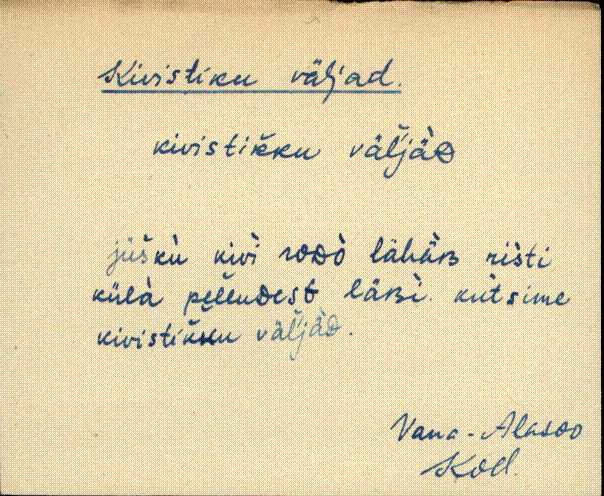 Kivistiku väljad.
kivistik̆ku väĺjäᴅ
jüškù kivi roᴅò lähäʙ risti
külà pelĺuᴅest läʙì. kütsime
kivistik̆ku väĺjäᴅ.
Vana-Alasoo
Kod.